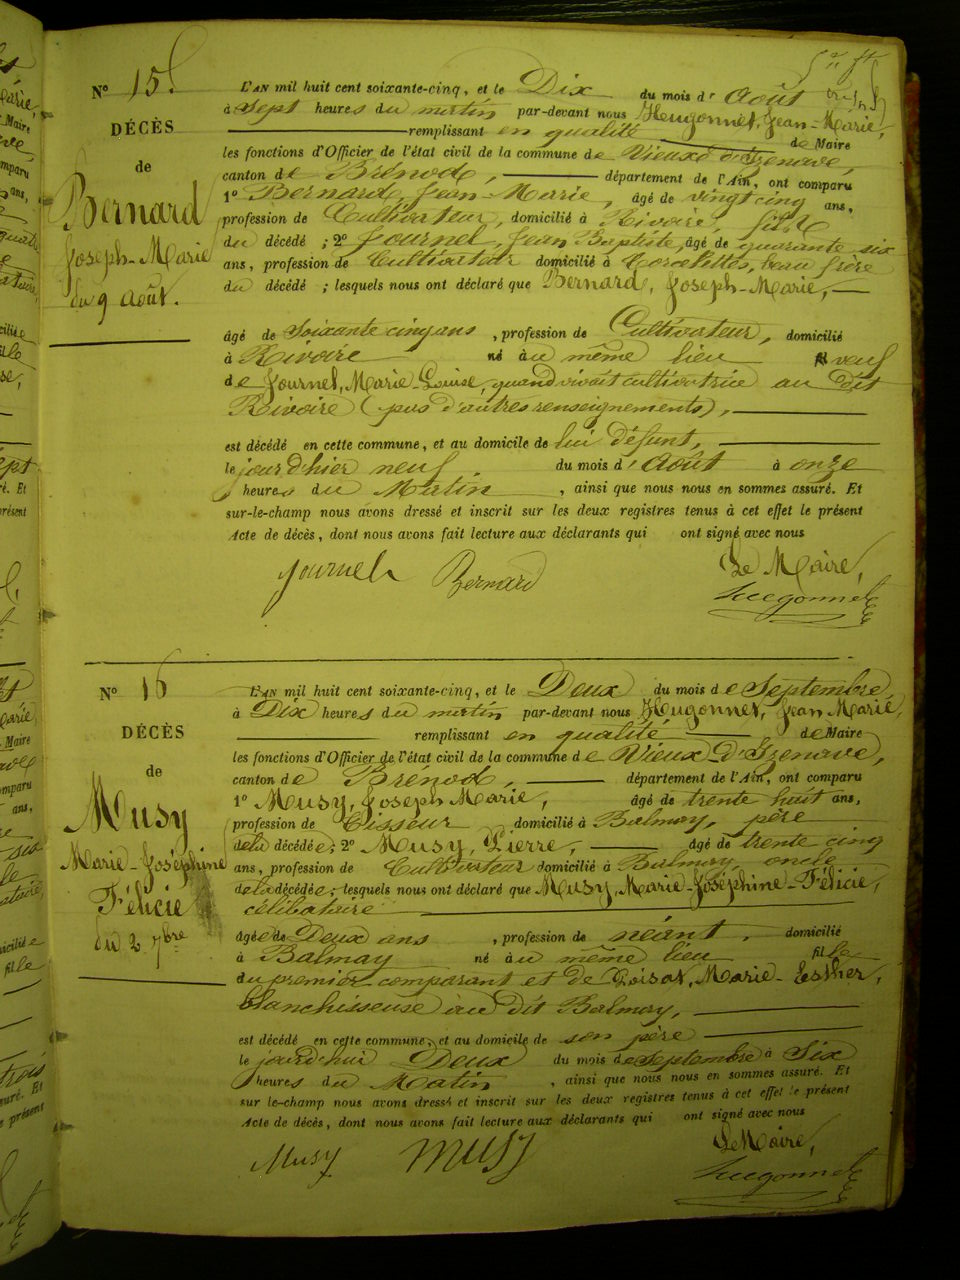 N° 15
DÉCÈS
de
Bernard
Joseph-Marie
du 9 Août.
L'AN mil huit cent soixante-cinq, et le Dix du mois d' Août
à sept heures du matin par-devant nous Hugonnet, Jean-Marie,
remplissant en qualité de Maire
les fonctions d'Officier de l'état civil de la commune de Vieux d'Izenave,
canton de Brénod, département de l'Ain, ont comparu
1° Bernard, Jean-Marie, âgé de vingt cinq ans,
profession de Cultivateur, domicilié à Rivoire, fils
du décédé ; 2° Journel, Jean Baptiste, âgé de quarante six
ans, profession de Cultivateur domicilié à Corcelettes, beau frère
du décédé ; lesquels nous ont déclaré que Bernard, Joseph-Marie,
âgé de Soixante cinq ans, profession de Cultivateur, domicilié
à Rivoire né au même lieu veuf
de Journel, Marie-Louise, quand vivait cultivatrice au dit
Rivoire (pas d'autres renseignements),
est décédé en cette commune, et au domicile de lui défunt,
le jour d'hier neuf du mois d' Août à onze
heures du Matin, ainsi que nous nous en sommes assuré. Et
sur-le-champ nous avons dressé et inscrit sur les deux registres tenus à cet effet le présent
Acte de décès, dont nous avons fait lecture aux déclarants qui ont signé avec nous
Le Maire,
Journel Bernard Hugonnet
N° 16
DÉCÈS
de
Musy
Marie-Joséphine
Félicie
du 2 7bre
L'AN mil huit cent soixante-cinq, et le Deux du mois de Septembre,
à Dix heures du matin par-devant nous Hugonnet, Jean Marie,
remplissant en qualité de Maire
les fonctions d'Officier de l'état civil de la commune de Vieux-D'Izenave,
canton de Brénod, département de l'Ain, ont comparu
1° Musy, Joseph Marie, âgé de trente huit ans,
profession de Tisseur domicilié à Balmay, père
de la décédée; 2° Musy, Pierre, âgé de trente cinq
ans, profession de Cultivateur domicilié à Balmay oncle
de la décédée; lesquels nous ont déclaré que Musy, Marie-Joséphine-Félicie,
célibataire
âgée de Deux ans, profession de néant, domicilié
à Balmay né au même lieu fille
du premier comparant et de Goisat, Marie-Esther,
blanchisseuse au dit Balmay,
est décédé en cette commune, et au domicile de son père
le jourd'hui Deux du mois de Septembre à Six
heures du Matin, ainsi que nous nous en sommes assuré. Et
sur le-champ nous avons dressé et inscrit sur les deux registres tenus à cet effet le présent
Acte de décès, dont nous avons fait lecture aux déclarants qui ont signé avec nous
Le Maire,
Musy Musy Hugonnet